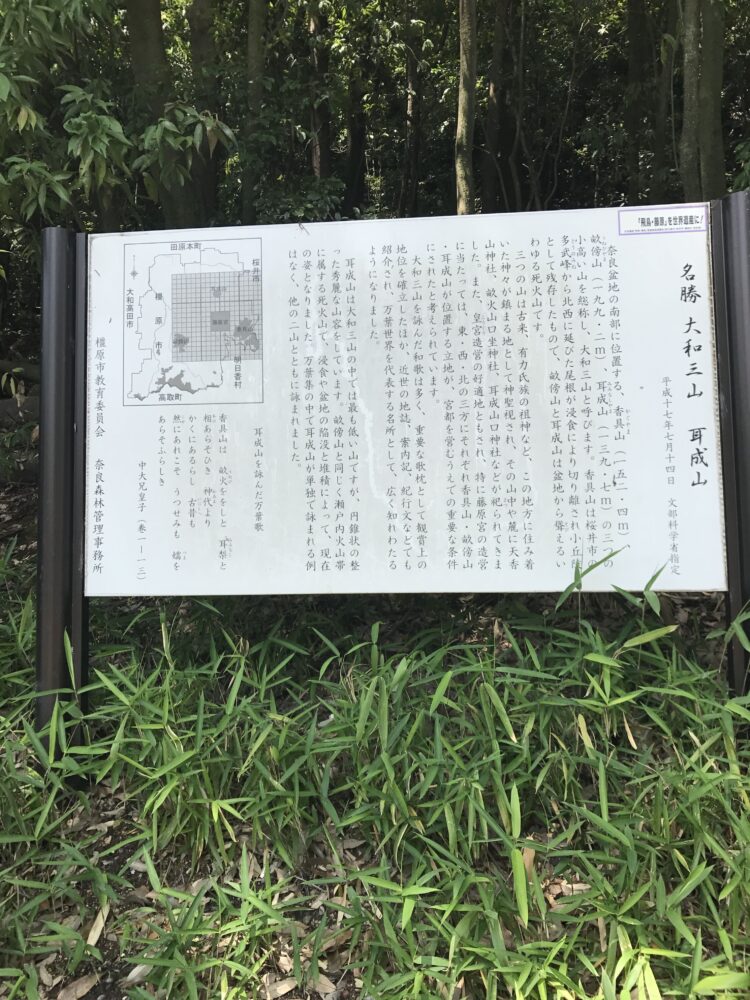 「飛鳥・藤原」を世界遺産に!
名勝 大和三山 耳成山
平成十七年七月十四日 文部科学省指定
奈良盆地の南部に位置する、香具山(一五二・四m)、
畝傍山(一九九・二m)、耳成山(一三九・七m)の三つの
小高い山を総称し、大和三山と呼びます。香具山は桜井市の
多武峰から北西に延びた尾根が浸食により切り離され小丘陵
として残存したもので、畝傍山と耳成山は盆地から聳えるい
わゆる死火山です。
三つの山は古来、有力氏族の祖神など、この地方に住み着
いた神々が鎮まる地として神聖視され、その山中や麓に天香
山神社、畝火山口坐神社、耳成山口神社などが祀られてきま
した。また、皇宮造営の好適地ともされ、特に藤原宮の造営
に当たっては、東・西・北の三方にそれぞれ香具山・畝傍山
・耳成山が位置する立地が、宮都を営むうえでの重要な条件
にされたと考えられています。
大和三山を詠んだ和歌は多く、重要な歌枕として観賞上の
地位を確立したほか、近世の地誌、案内記、紀行文などでも
紹介され、万葉世界を代表する名所として、広く知れわたる
ようになりました。
耳成山は大和三山の中では最も低い山ですが、円錐状の整
った秀麗な山容をしています。畝傍山と同じく瀬戸内火山帯
に属する死火山で、浸食や盆地の陥没と堆積によって、現在
の姿となりました。万葉集の中で耳成山が単独で詠まれる例
はなく、他の二山とともに詠まれました。
耳成山を詠んだ万葉歌
香具山は 畝火ををしと 耳梨と
相あらそひき 神代より
かくにあるらし 古昔も
然にあれこそ うつせみも 嬬を
あらそふらしき
中大兄皇子(巻一-一三)
田原本町
桜井市
橿原市
大和高田市
明日香村
高取町
橿原市教育委員会 奈良森林管理事務所